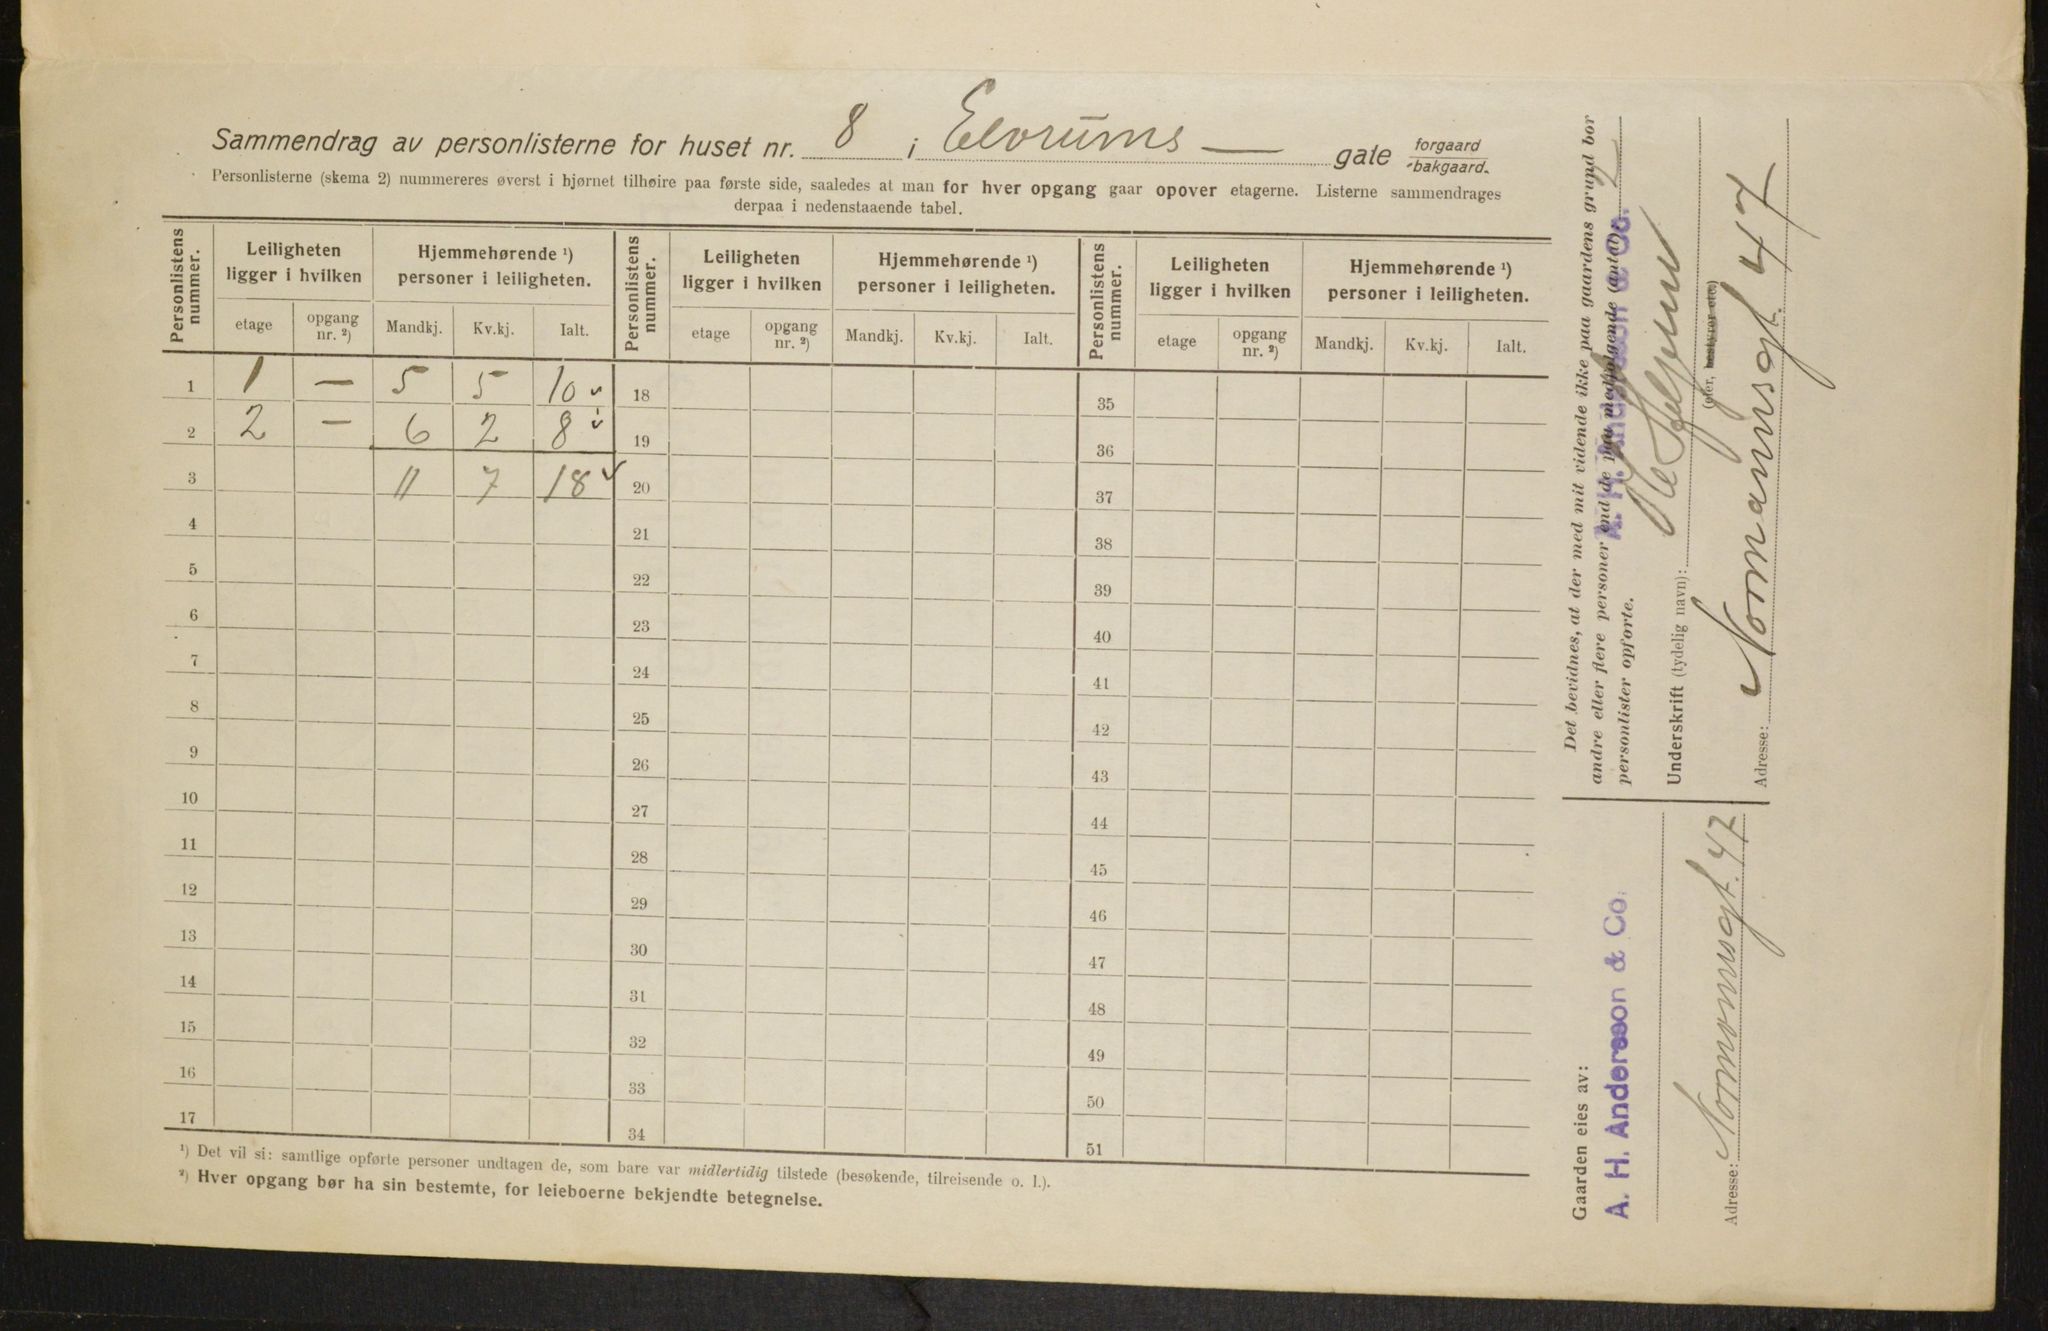 Sammendrag av personlisterne for huset nr. 8 i Elvrums — gate forgaard / bakgaard.
Personlisterne (skema 2) nummereres øverst i hjørnet tilhøire paa første side, saaledes at man for hver opgang gaar opover etagerne. Listerne sammendrages
derpaa i nedenstaaende tabel.
Personlistens nummer. Leiligheten ligger i hvilken Hjemmehørende ¹) personer i leiligheten. Personlistens nummer. Leiligheten ligger i hvilken Hjemmehørende ¹) personer i leiligheten. Personlistens nummer. Leiligheten ligger i hvilken Hjemmehørende ¹) personer i leiligheten.
etage opgang nr. ²) Mandkj. Kv.kj. Ialt. etage opgang nr. ²) Mandkj. Kv.kj. Ialt. etage opgang nr. ²) Mandkj. Kv.kj. Ialt.
1 1 — 5 5 10 18 35
2 2 — 6 2 8 19 36
3 11 7 18 20 37
4 21 38
5 22 39
6 23 40
7 24 41
8 25 42
9 26 43
10 27 44
11 28 45
12 29 46
13 30 47
14 31 48
15 32 49
16 33 50
17 34 51
¹) Det vil si: samtlige opførte personer undtagen de, som bare var midlertidig tilstede (besøkende, tilreisende o. l.).
²) Hver opgang bør ha sin bestemte, for leieboerne bekjendte betegnelse.
Det bevidnes, at der med mit vidende ikke paa gaardens grund bor
andre eller flere personer end de paa medfølgende (antal) 2
personlister opførte.
A. H. Andersson & Co.
Underskrift (tydelig navn): Ole
(eier, bestyrer etc.)
Adresse: Normansgt. 47
Gaarden eies av:
A. H. Andersson & Co.
Adresse: Normannsgt. 47